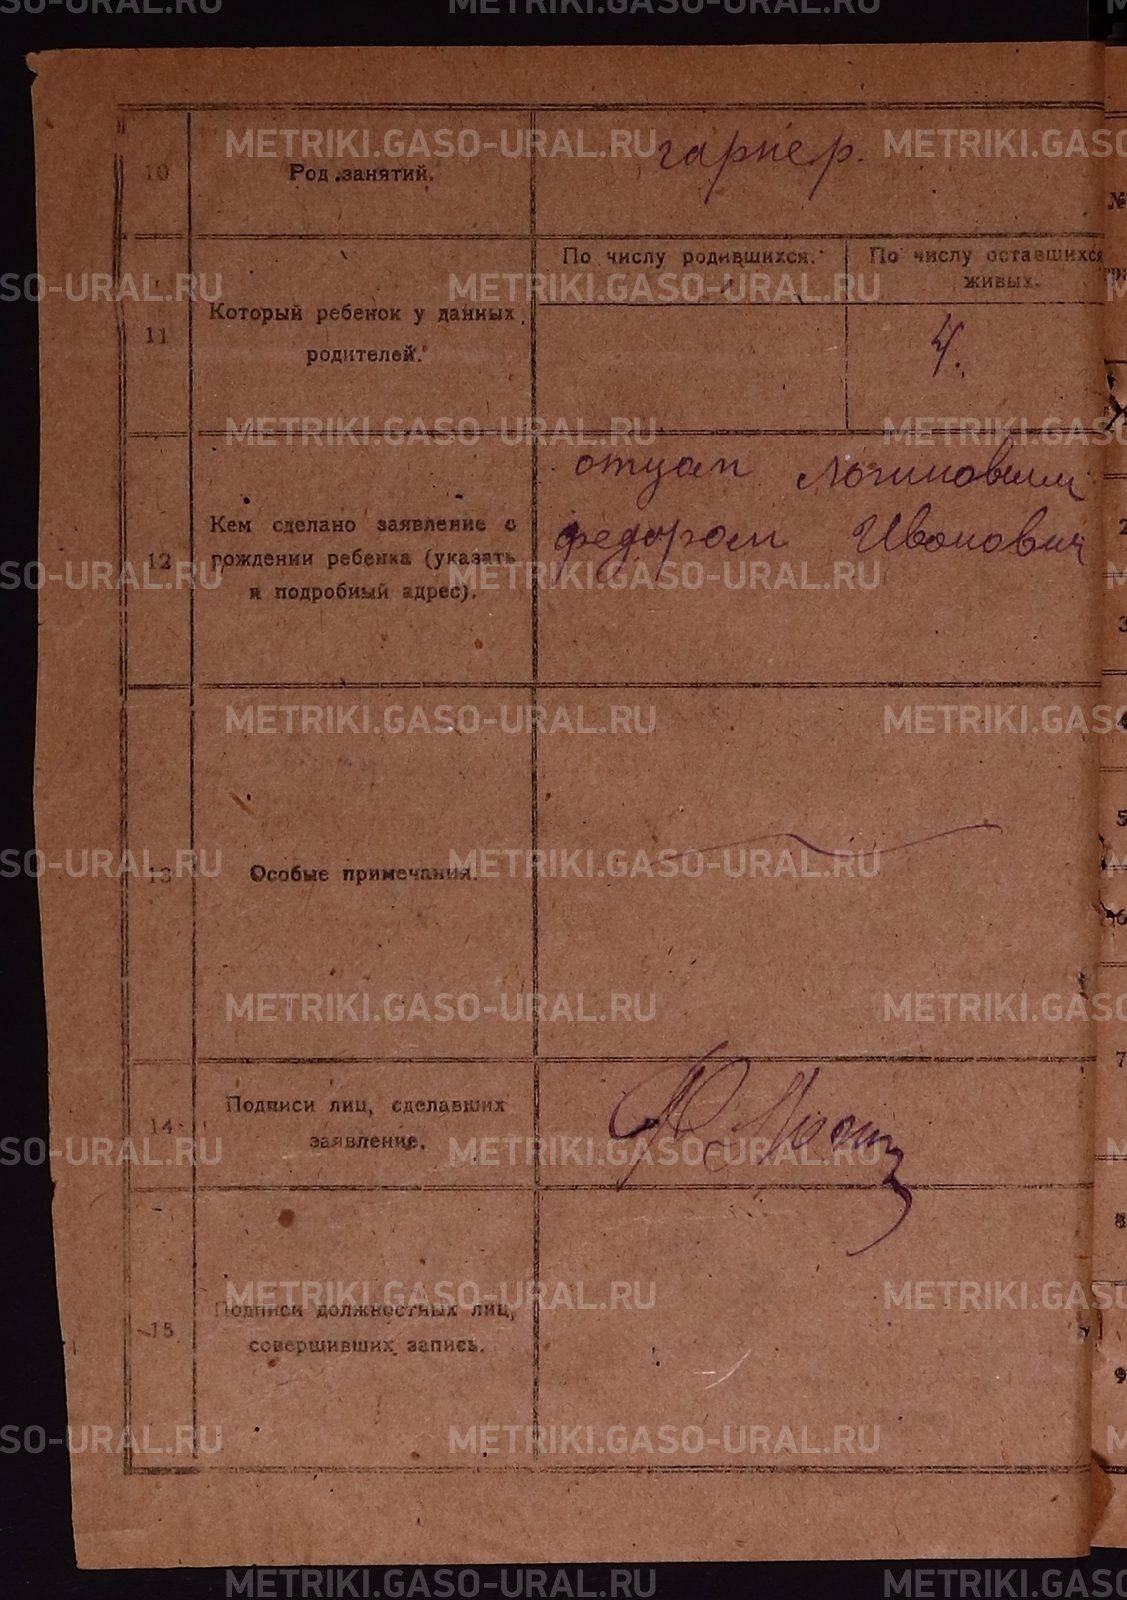 10
Род занятий.
гарнер.
11
Который ребенок у данных
родителей.
По числу родившихся.
По числу оставшихся
живых.
4.
12
Кем сделано заявление о
рождении ребенка (указать
и подробный адрес).
отцам Логиновым
федором Иванович
13
Особые примечания.
14
Подписи лиц, сделавших
заявление.
15
Подписи должностных лиц,
совершивших запись.
№
2
3
4
5
6
7
8
9
METRIKI.GASO-URAL.RU